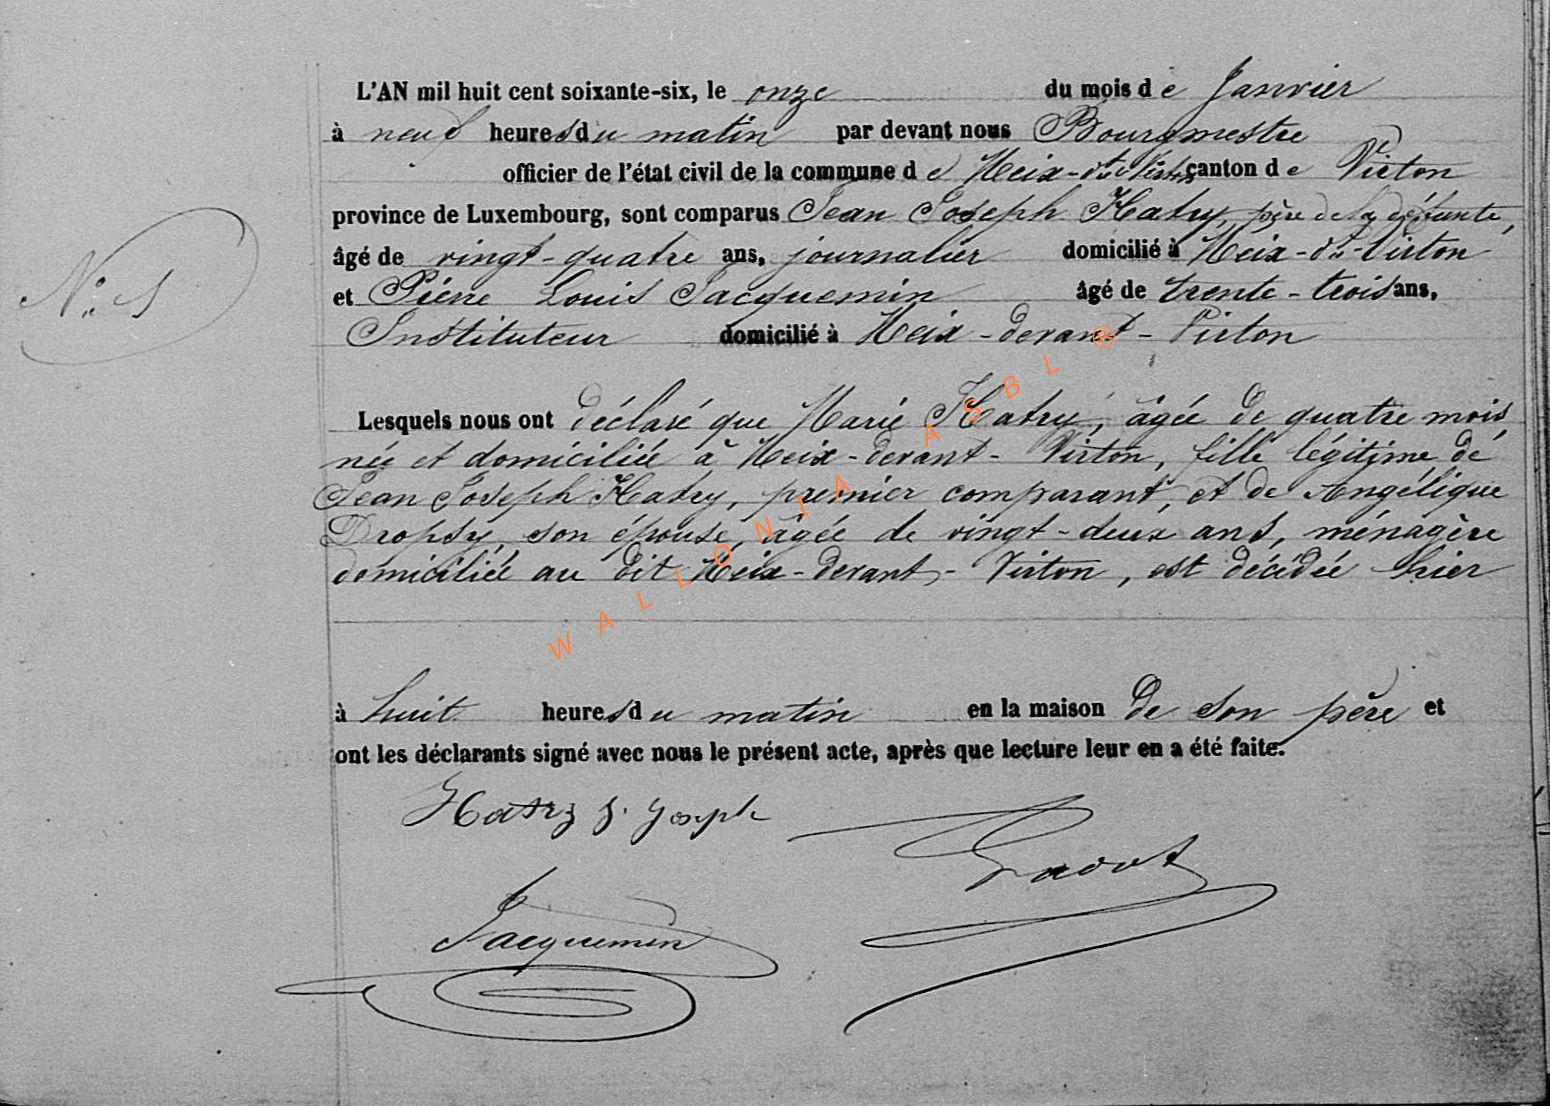 L'AN mil huit cent soixante-six, le onze du mois de Janvier
à neuf heures du matin par devant nous Bourgmestre
officier de l'état civil de la commune de Meix-dt-Virton canton de Virton
province de Luxembourg, sont comparus Jean Joseph Hatry, père de la défunte,
âgé de vingt-quatre ans, journalier domicilié à Meix-dt-Virton
et Pierre Louis Jacquemin âgé de trente-trois ans,
N° 1
Instituteur domicilié à Meix-devant-Virton
Lesquels nous ont déclaré que Marie Hatry, âgée de quatre mois,
née et domiciliée à Meix-devant-Virton, fille légitime de
Jean Joseph Hatry, premier comparant, et de Angélique
Dropsy son épouse, âgée de vingt-deux ans, ménagère
domiciliée au dit Meix-devant-Virton, est décédée hier
WALLONIA ASBL ®
à huit heures du matin en la maison de son père et
ont les déclarants signé avec nous le présent acte, après que lecture leur en a été faite.
Hatry J. Joseph
Jacquemin